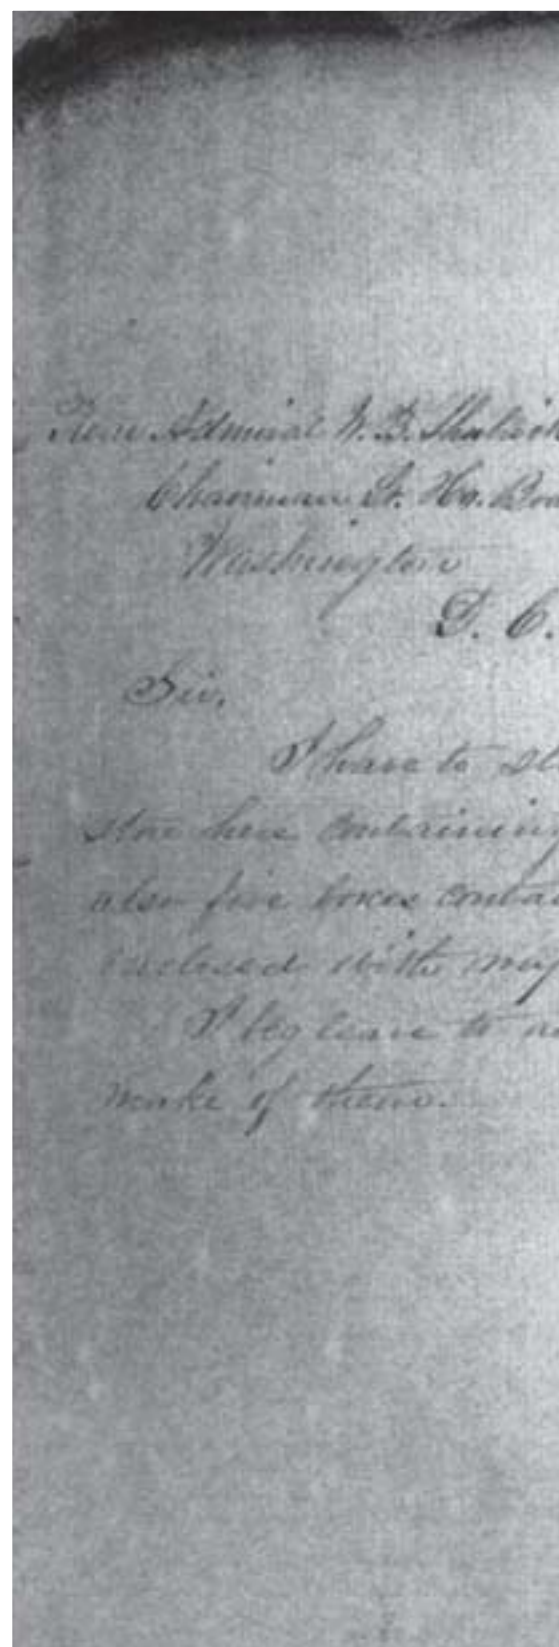 Rear Admiral W. B. Shubrick
Chairman Lt. Ho. Boa
Washington
D. C.
Sir,
I have to st
store here containing
also five boxes contai
enclosed with my
I beg leave to
make of them.